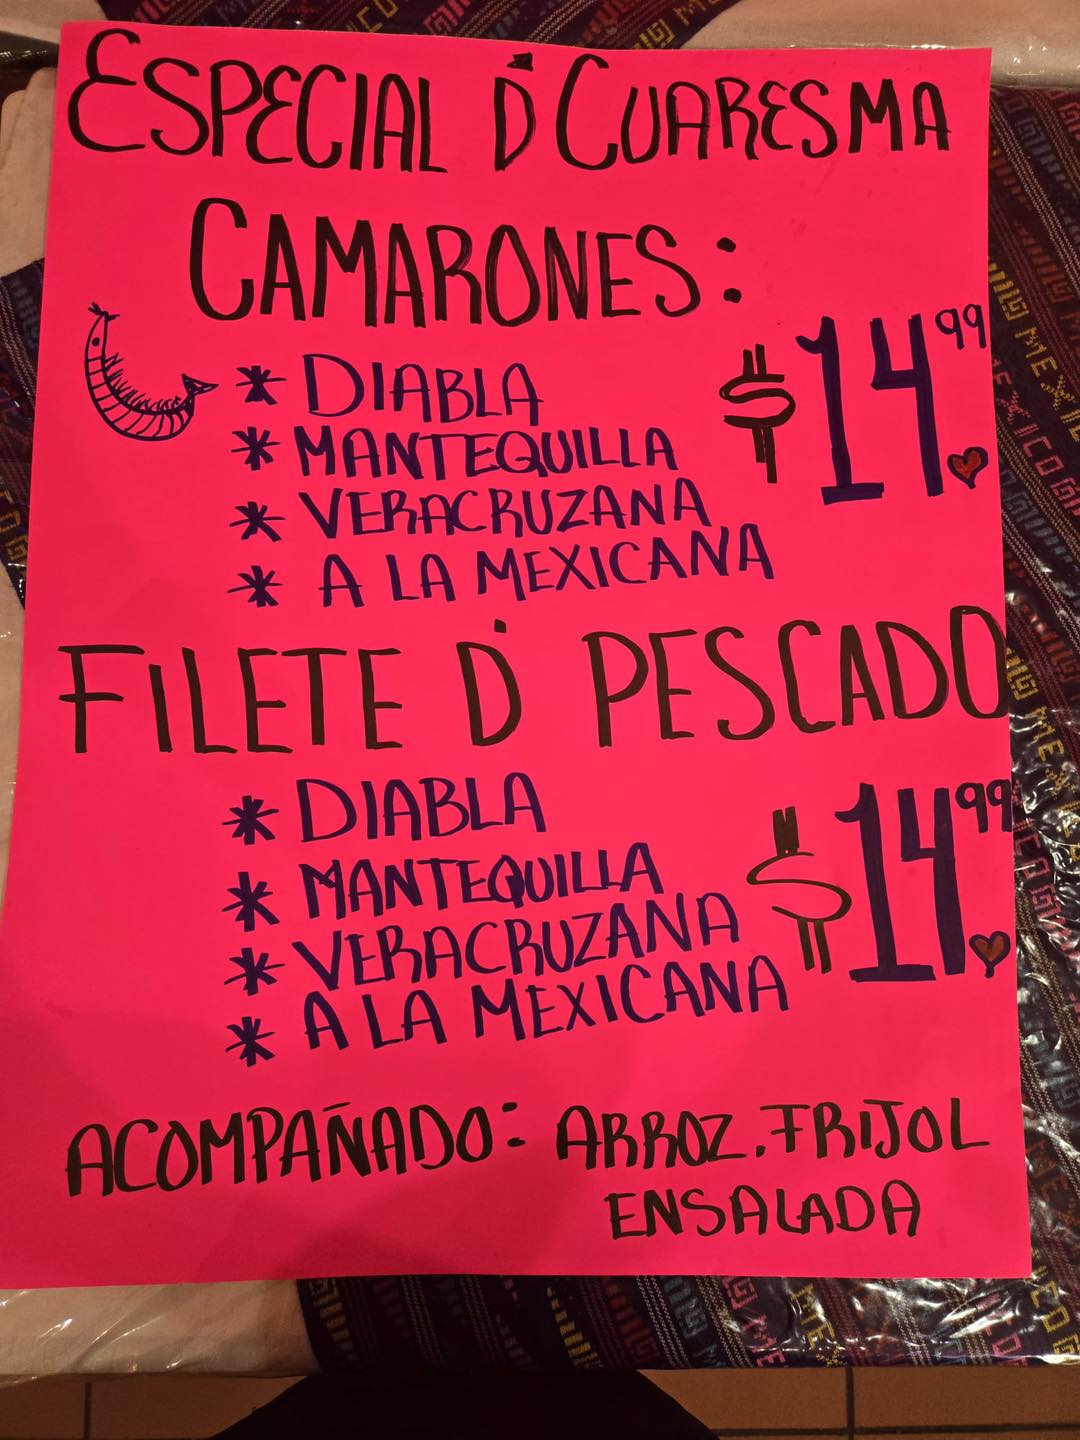 ESPECIAL D' CUARESMA
CAMARONES:
* DIABLA
* MANTEQUILLA
* VERACRUZANA
* A LA MEXICANA
$14.99
FILETE D' PESCADO
* DIABLA
* MANTEQUILLA
* VERACRUZANA
* A LA MEXICANA
$14.99
ACOMPAÑADO: ARROZ. FRIJOL
ENSALADA
MEXICO